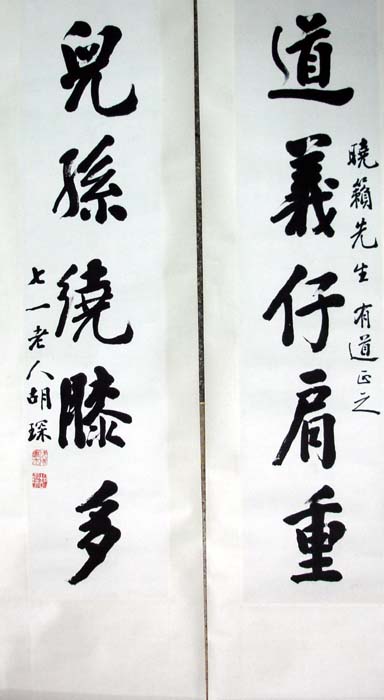 道義仔肩重
曉籟先生有道正之
兒孫繞膝多
七一老人胡琛